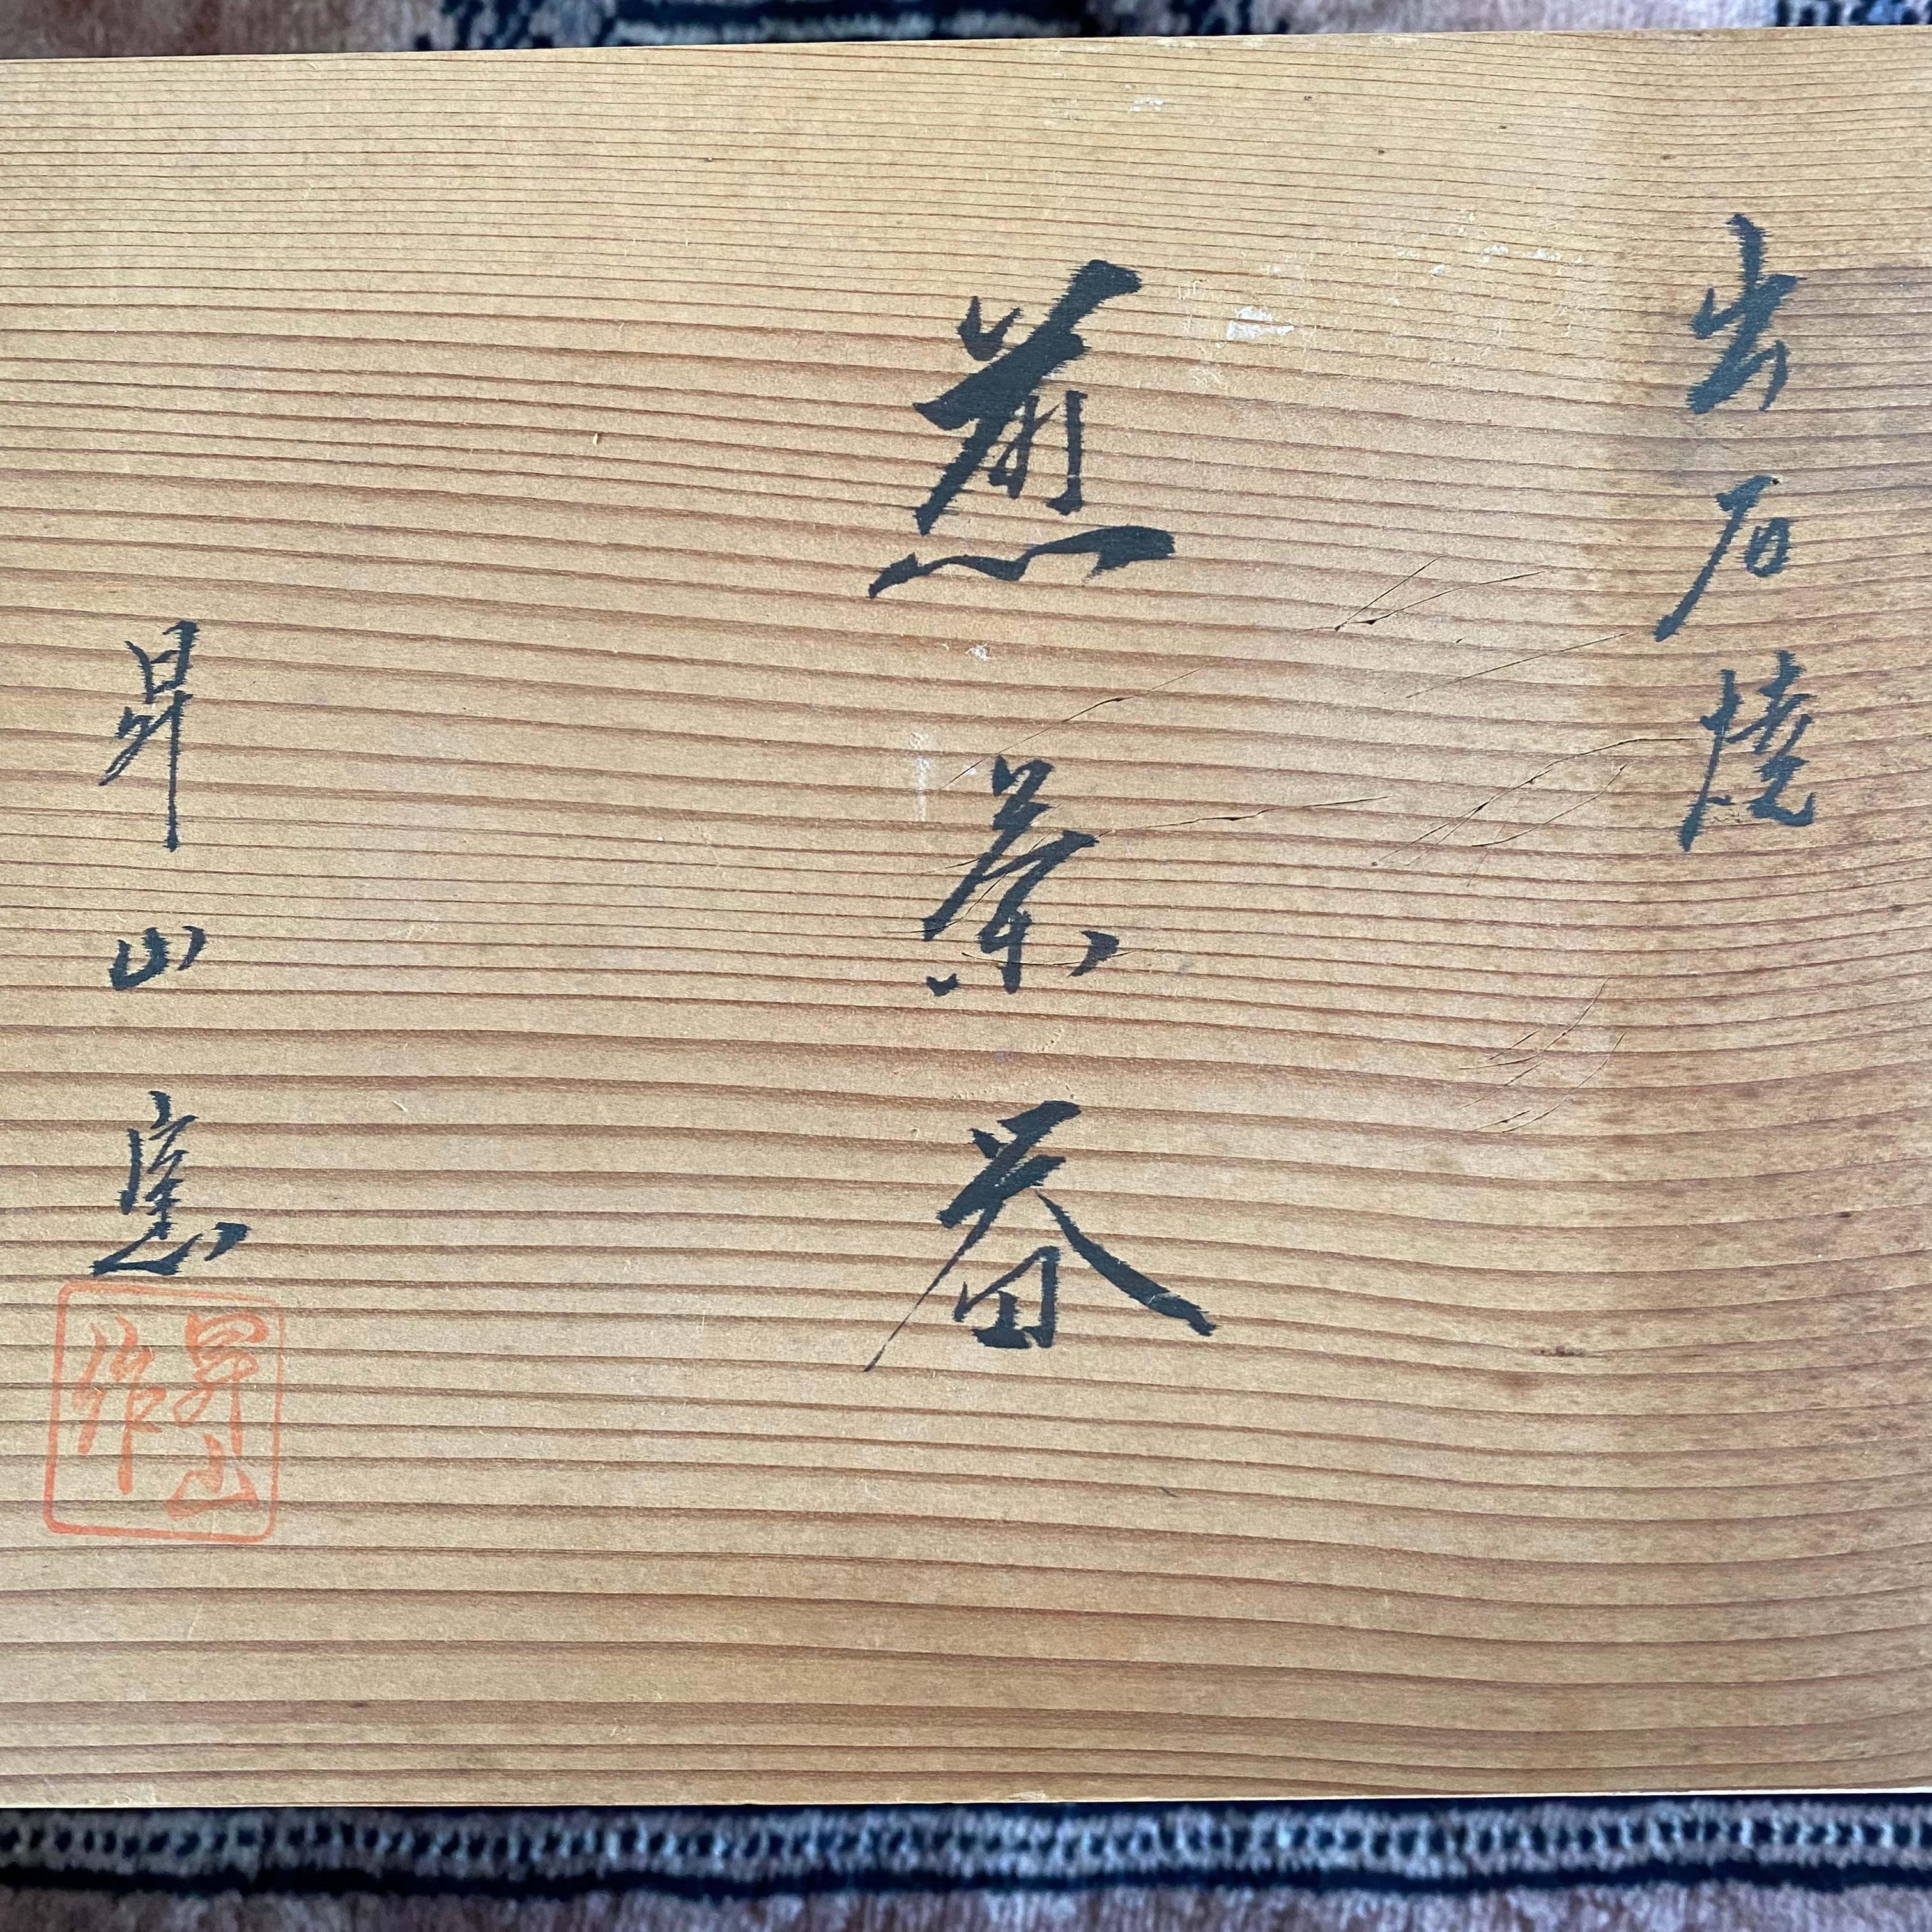 出石焼
煎茶器
昇山窯
昇山
作